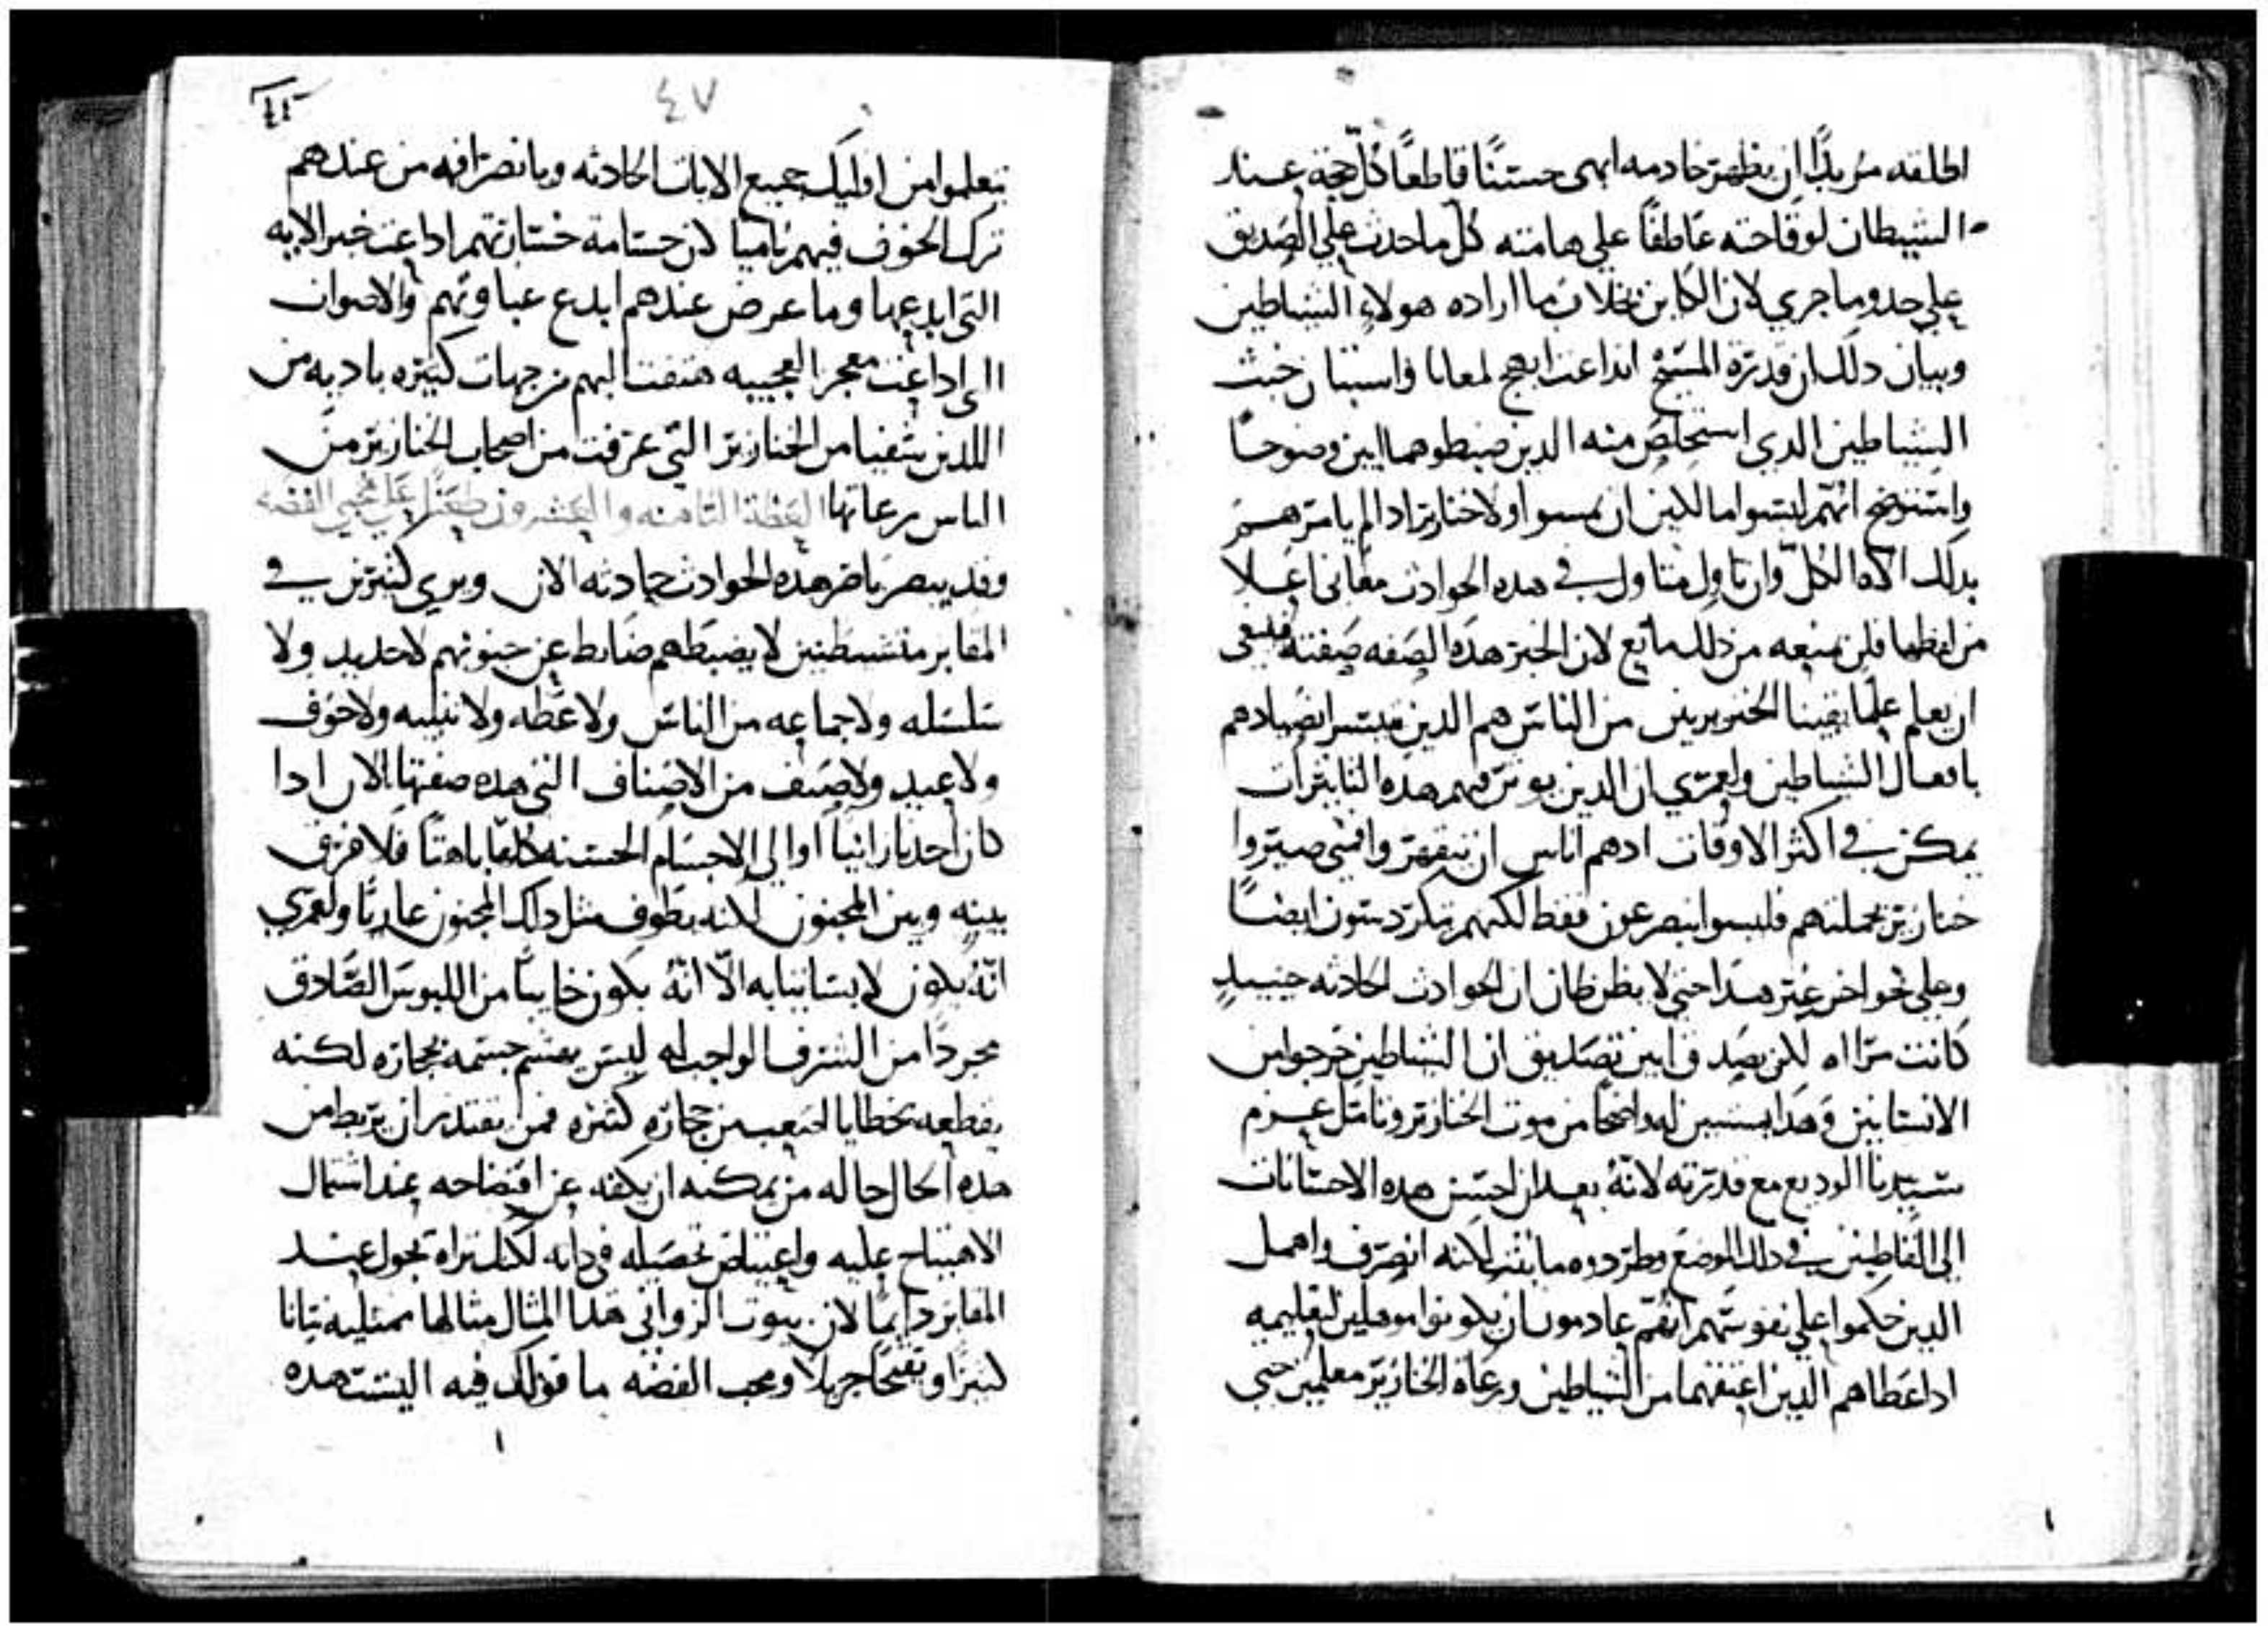 اطلقه مريدًا ان يظهر خادمه ابهى حسنًا قاطعًا كل حجة عند
الشيطان لوقاحته عاطفًا علي هامته كل ما حدث علي الصديق
علي حدو ما جري لان الكاين بخلاف ما اراده هولاء الشياطين
وبيان دلك ان قدرة المسيح اداعت ابهج لمعانا واستبان خبث
الشياطين الدي استخلص منه الدين ضبطوهما ابين وضوحًا
واستوضح انهم ليسوا مالكين ان يمسوا ولا خنازير ادا لم يامرهم
بدلك اله الكل وان تاول متاول في هده الحوادث معاني اعلا
من لفظها فلن يمنعه من دلك مانع لان الخبر هده الصفه صفته فينبغي
ان يعلم علمًا يقينا الخنزيريين من الناس هم الدين متيسر انصيادهم
بافعال الشياطين ولعمري ان الدين يوثر فيهم هده التاثيرات
يمكن في اكثر الاوقات ادهم اناس ان تتقهر وامتى صيروا
خنازير بجملتهم فليسوا ينصرعون فقط لكنهم يتكردسون ايضًا
وعلي نحو اخر غير هدا حتى لا يظن ظان ان الحوادث الحادثه حينيد
كانت مراه لكن يصدق ابين تصديق ان الشياطين خرجوا من
الانسانين وهدا يستبين له واضحا من موت الخنازير وتامل عزم
سيدنا الوديع مع قدرته لانه بعد ان احسن هده الاحسانات
الى القاطنين في دلك الموضع وطردوه ما لكنه انصرف واهمل
الدين حكموا علي نفوسهم انهم عادمون ان يكونوا موهلين لتعليمه
اد اعطاهم الدين اعتقهما من الشياطين ورعاة الخنازير معلمين حتي
٤٧
يتعلموا من اوليك جميع الايات الحادثه وبانصرافه من عندهم
ترك الخوف فيهم ناميا لان جسامة خسارتهم اداعت خبر الايه
التي ابدعها وما عرض عندهم ابدع غباوتهم والاصوات
التي اداعت معجز العجيبه هتفت اليهم من جهات كثيره باديه من
اللدين شفيا من الخنازير التي غرقت من اصحاب الخنازير من
الناس رعاتها العظة الثامنه والعشرون طعنًا علي محبي الفضه
وقد يبصر ناظر هده الحوادث حادثه الان ويري كثيرين في
المقابر متشيطنين لا يضبطهم ضابط عن جنونهم لا حديد ولا
سلسله ولا جماعه من الناس ولا عظه ولا تنبيه ولا خوف
ولا وعيد ولا صنف من الاصناف التي هده صفتها الان ادا
كان احد زانيا او الي الاجسام الحسنه كلفا باهتًا فلا فرق
بينه وبين المجنون لكنه يطوف مثل دلك المجنون عاريًا ولعمري
انه يكون لابسا ثيابه الا انه يكون خايبًا من اللبوس الصادق
مجردًا من الشرف الواجب له ليس يهشم جسمه بحجاره لكنه
يقطعه بخطايا اصعب من حجاره كثيره فمن يقتدر ان يربط من
هده الحال حاله من يمكنه ان يكفه عن افتضاحه عند اشتمال
الاهتياج عليه واعتياض تحصيله في داته لكنك تراه يجول عند
المقابر دايمًا لان بيوت الزواني هدا المثال مثالها ممتليه نتانا
كثيرًا وتفتحًا جزيلا ومحب الفضه ما قولك فيه اليست هده